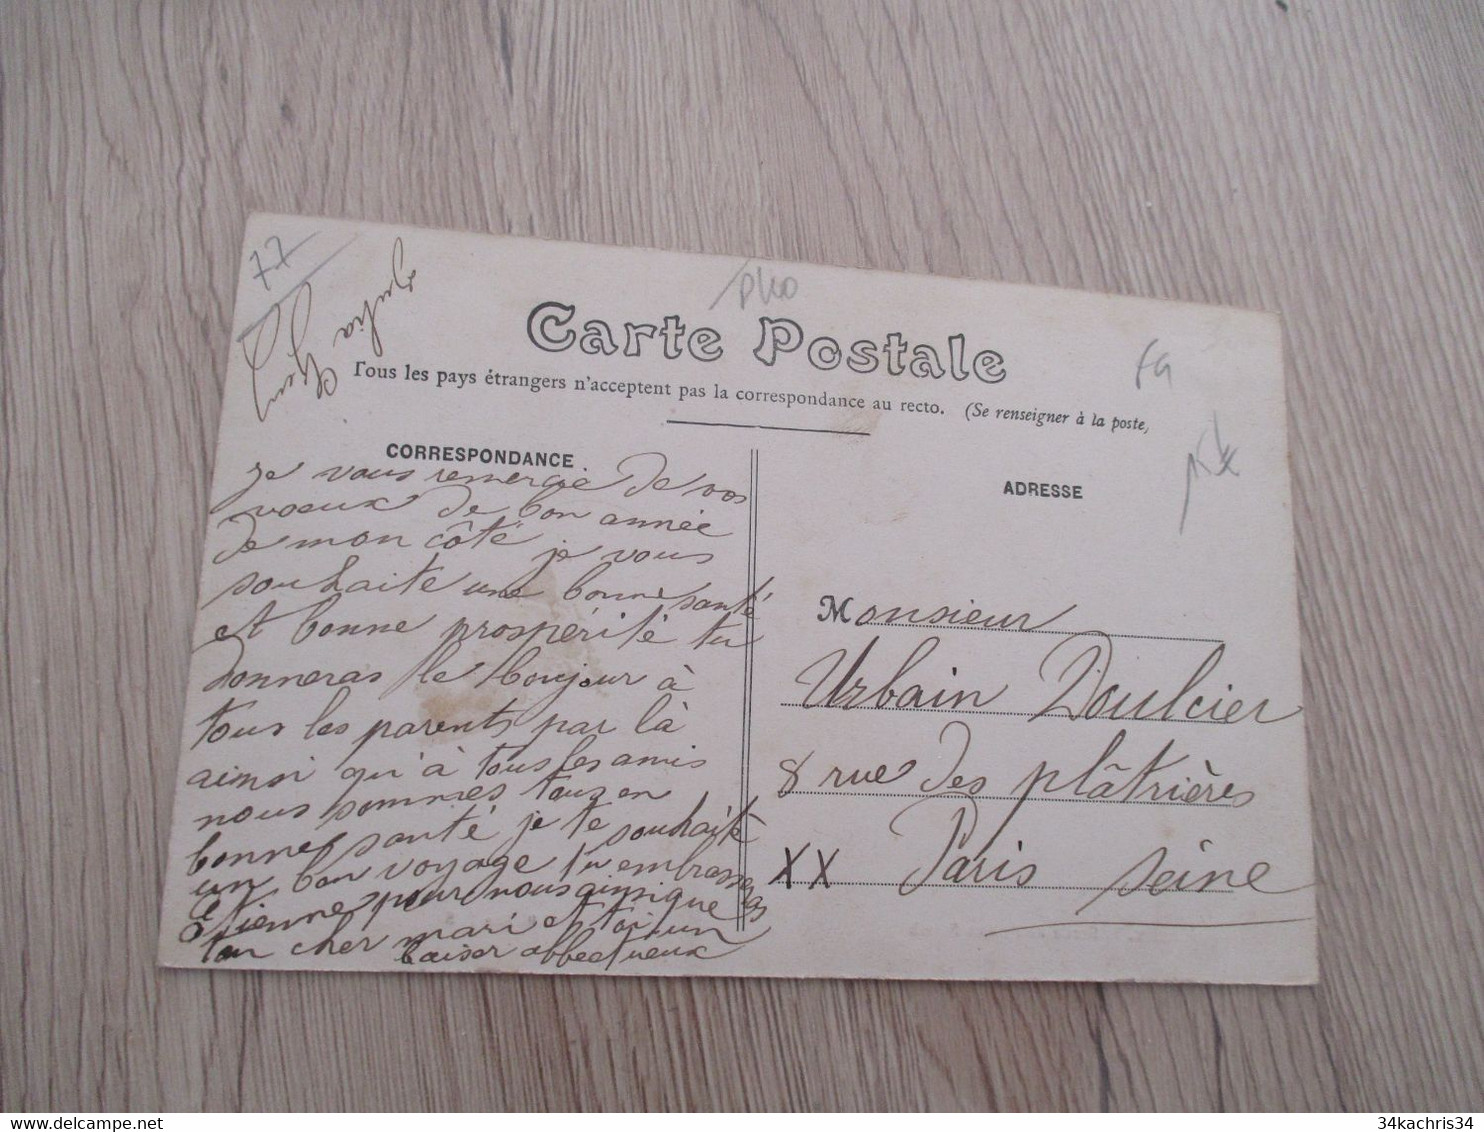 77
Julia
pKo
Carte Postale
Tous les pays étrangers n'acceptent pas la correspondance au recto. (Se renseigner à la poste,
CORRESPONDANCE.
je vous remercie de vos
voeux de bon année
de mon côté je vous
souhaite une bonne santé
et bonne prospérité tu
donneras le bonjour à
tous les parents par là
ainsi qu'à tous les amis
nous sommes tous en
bonne santé je te souhaite
un bon voyage tu embrasseras
Etienne pour nous ainsi que
ton cher mari et toi un
baiser affectueux
ADRESSE
Monsieur
Urbain Doulcier
8 rue des plâtrières
XX Paris Seine
34kachris34